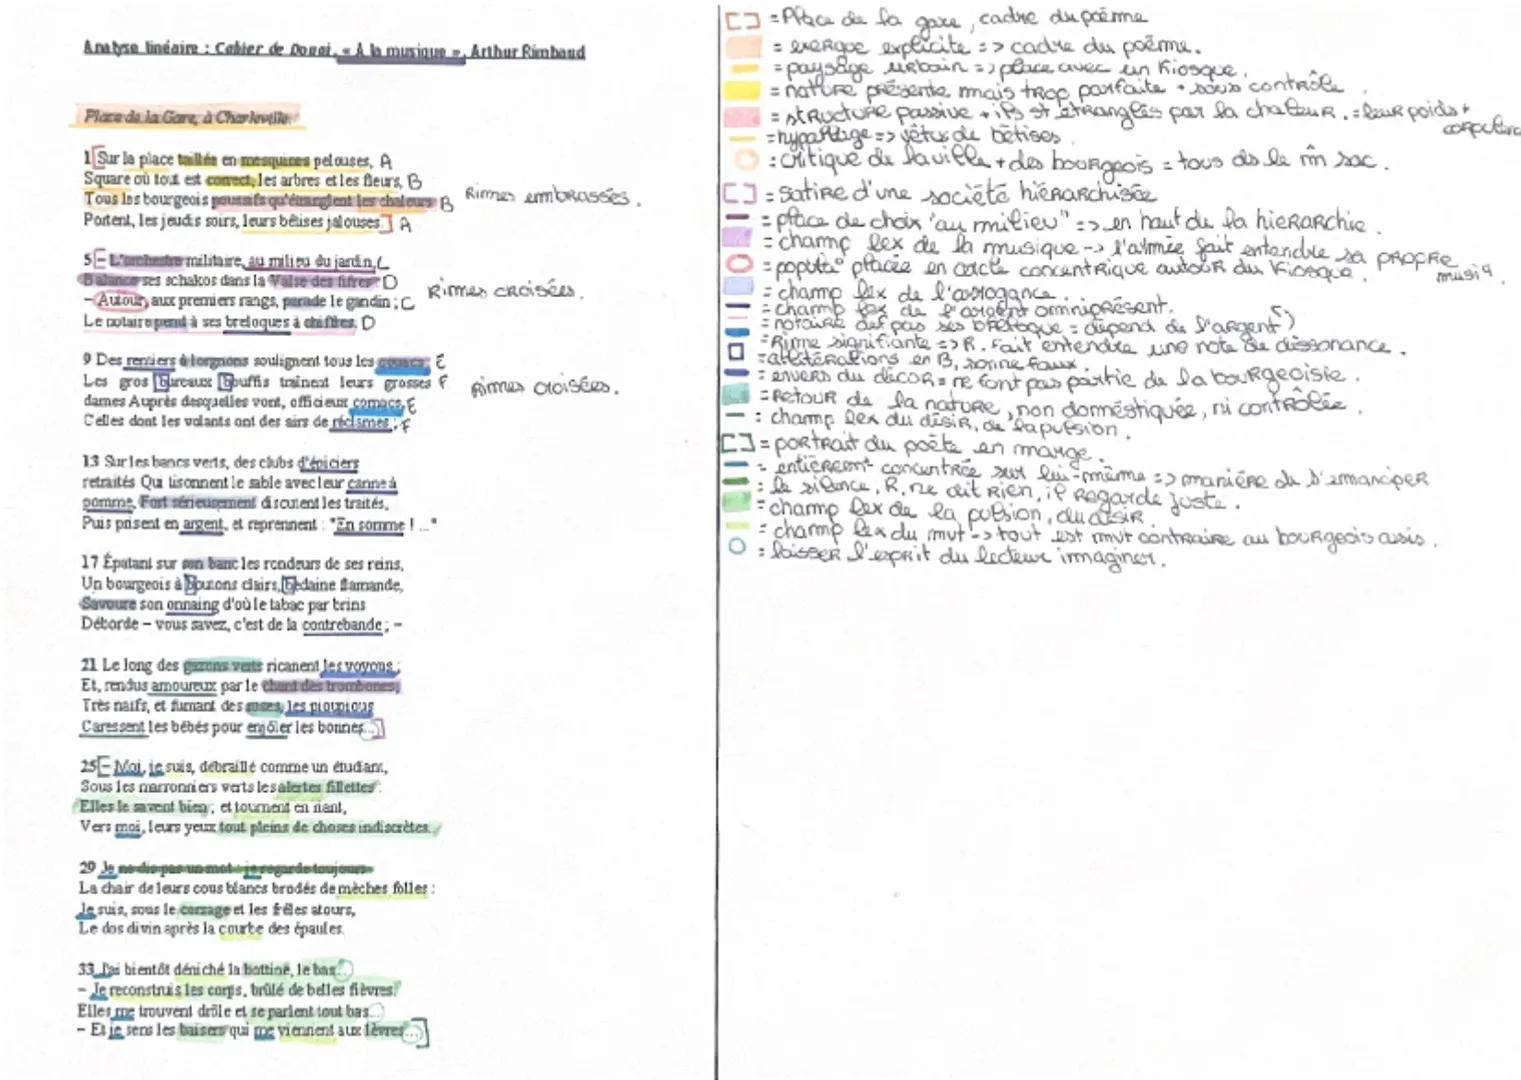 Analyse linéaire : Cahier de Douai, « À la musique », Arthur Rimbaud
Place de la Gare, à Charleville.
1 Sur la place taillée en mesquines pelouses, A
Square où tout est correct, les arbres et les fleurs, B
Tous les bourgeois poussifs qu'étranglent les chaleurs B
Portent, les jeudis soirs, leurs bêtises jalouses. A
Rimes embrassées.
5 - L'orchestre militaire, au milieu du jardin, C
Balance ses schakos dans la Valse des fifres : D
- Autour, aux premiers rangs, parade le gandin ; C
Le notaire pend à ses breloques à chiffres. D
Rimes croisées.
9 Des rentiers à lorgnons soulignent tous les couacs : E
Les gros bureaux bouffis traînent leurs grosses F
dames Auprès desquelles vont, officieux cornacs, E
Celles dont les volants ont des airs de réclames ; F
Rimes croisées.
13 Sur les bancs verts, des clubs d'épiciers
retraités Qui tisonnent le sable avec leur canne à
pomme, Fort sérieusement discutent les traités,
Puis prisent en argent, et reprennent : "En somme ! ..."
17 Épatant sur son banc les rondeurs de ses reins,
Un bourgeois à boutons clairs, bedaine flamande,
Savoure son onnaing d'où le tabac par brins
Déborde – vous savez, c'est de la contrebande ; –
21 Le long des gazons verts ricanent les voyous ;
Et, rendus amoureux par le chant des trombones,
Très naïfs, et fumant des roses, les pioupious
Caressent les bébés pour enjôler les bonnes...
25 - Moi, je suis, débraillé comme un étudiant,
Sous les marronniers verts les alertes fillettes :
Elles le savent bien ; et tournent en riant,
Vers moi, leurs yeux tout pleins de choses indiscrètes.
29 Je ne dis pas un mot : je regarde toujours
La chair de leurs cous blancs brodés de mèches folles :
Je suis, sous le corsage et les frêles atours,
Le dos divin après la courbe des épaules.
33 J'ai bientôt déniché la bottine, le bas...
– Je reconstruis les corps, brûlé de belles fièvres.
Elles me trouvent drôle et se parlent tout bas...
– Et je sens les baisers qui me viennent aux lèvres...
= Place de la gare, cadre du poème
= exergue explicite => cadre du poème.
= paysage urbain => place avec un Kiosque.
= nature présente mais trop parfaite + sous contrôle
= structure passive + ils st étranglés par la chaleur. = leur poids + corpulence
= hypallage => vêtus de bêtises.
: critique de la ville + des bourgeois = tous ds le m̂ sac.
= satire d'une société hiérarchisée
= place de choix "au milieu" => en haut de la hiérarchie.
= champ lex de la musique -> l'armée fait entendre sa propre musiq.
= populat° placée en cercle concentrique autour du Kiosque.
= champ lex de l'arrogance.
= champ lex de l'argent omniprésent.
= notaire def pas ses breloque = dépend de l'argent)
= Rime signifiante => R. fait entendre une note de dissonance.
= allitérations en B, sonne faux.
= envers du décor = ne font pas partie de la bourgeoisie.
= retour de la nature, non domestiquée, ni contrôlée.
: champ lex du désir, de la pulsion.
= portrait du poète en marge.
= entièremt concentrée sur lui-même => manière de s'émanciper
: le silence, R. ne dit rien, il regarde juste.
= champ lex de la pulsion, du désir
= champ lex du mvt -> tout est mvt contraire au bourgeois assis.
: laisser l'esprit du lecteur imaginer.